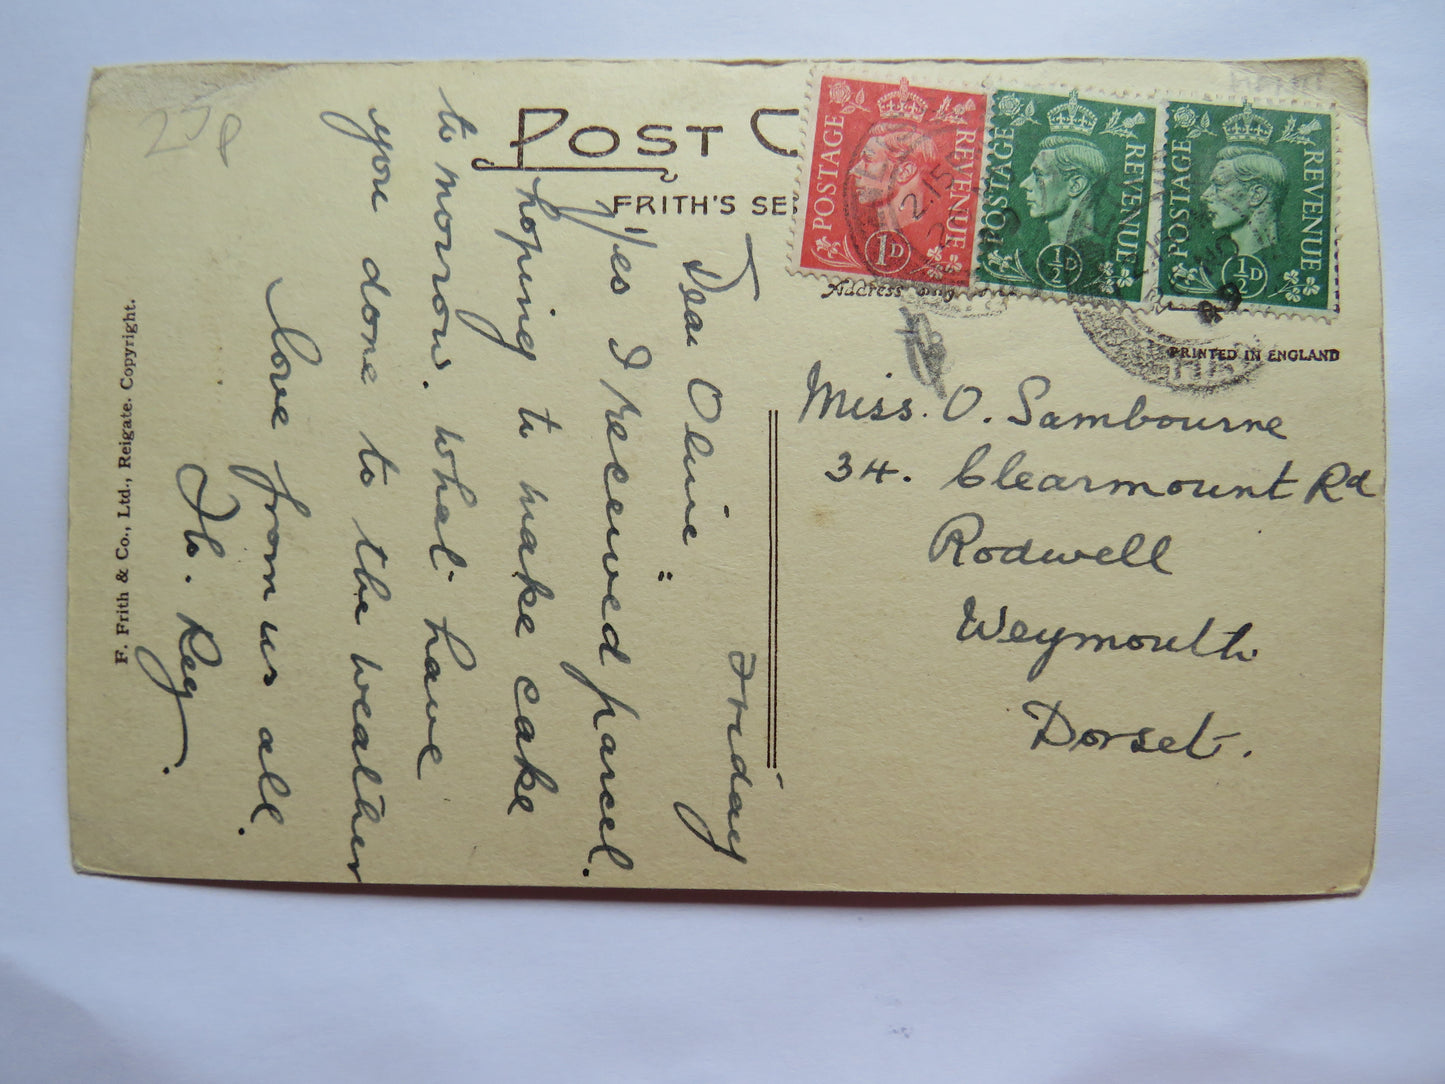 POST C
FRITH'S SE
POSTAGE REVENUE
1D
POSTAGE REVENUE
½D
POSTAGE REVENUE
½D
Address
PRINTED IN ENGLAND
Miss. O. Sambourne
34. Clearmount Rd
Rodwell
Weymouth
Dorset.
Friday
Dear Olive
Yes I received parcel.
hoping to make cake
to morrow. what have
you done to the weather
love from us all.
Reg.
F. Frith & Co., Ltd., Reigate. Copyright.